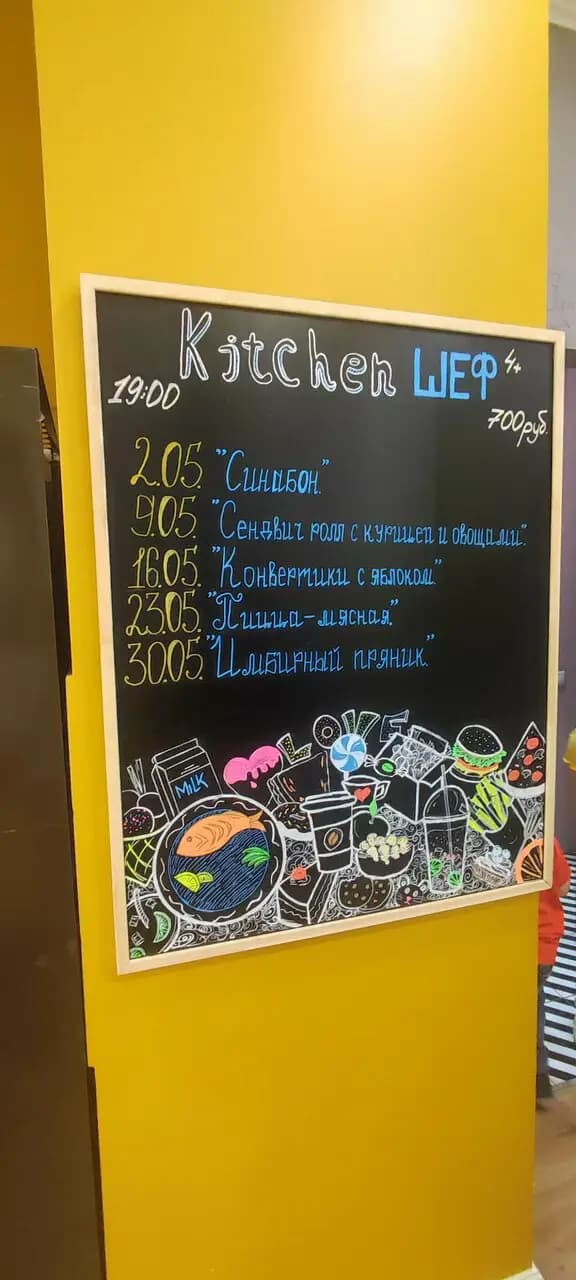 Kitchen ШЕФ 4+
19:00
700руб.
2.05. "Синабон"
9.05. "Сендвич ролл с курицей и овощами".
16.05. "Конвертики с яблоком"
23.05. "Пицца-мясная"
30.05. "Имбирный пряник"
LOVE
MILK